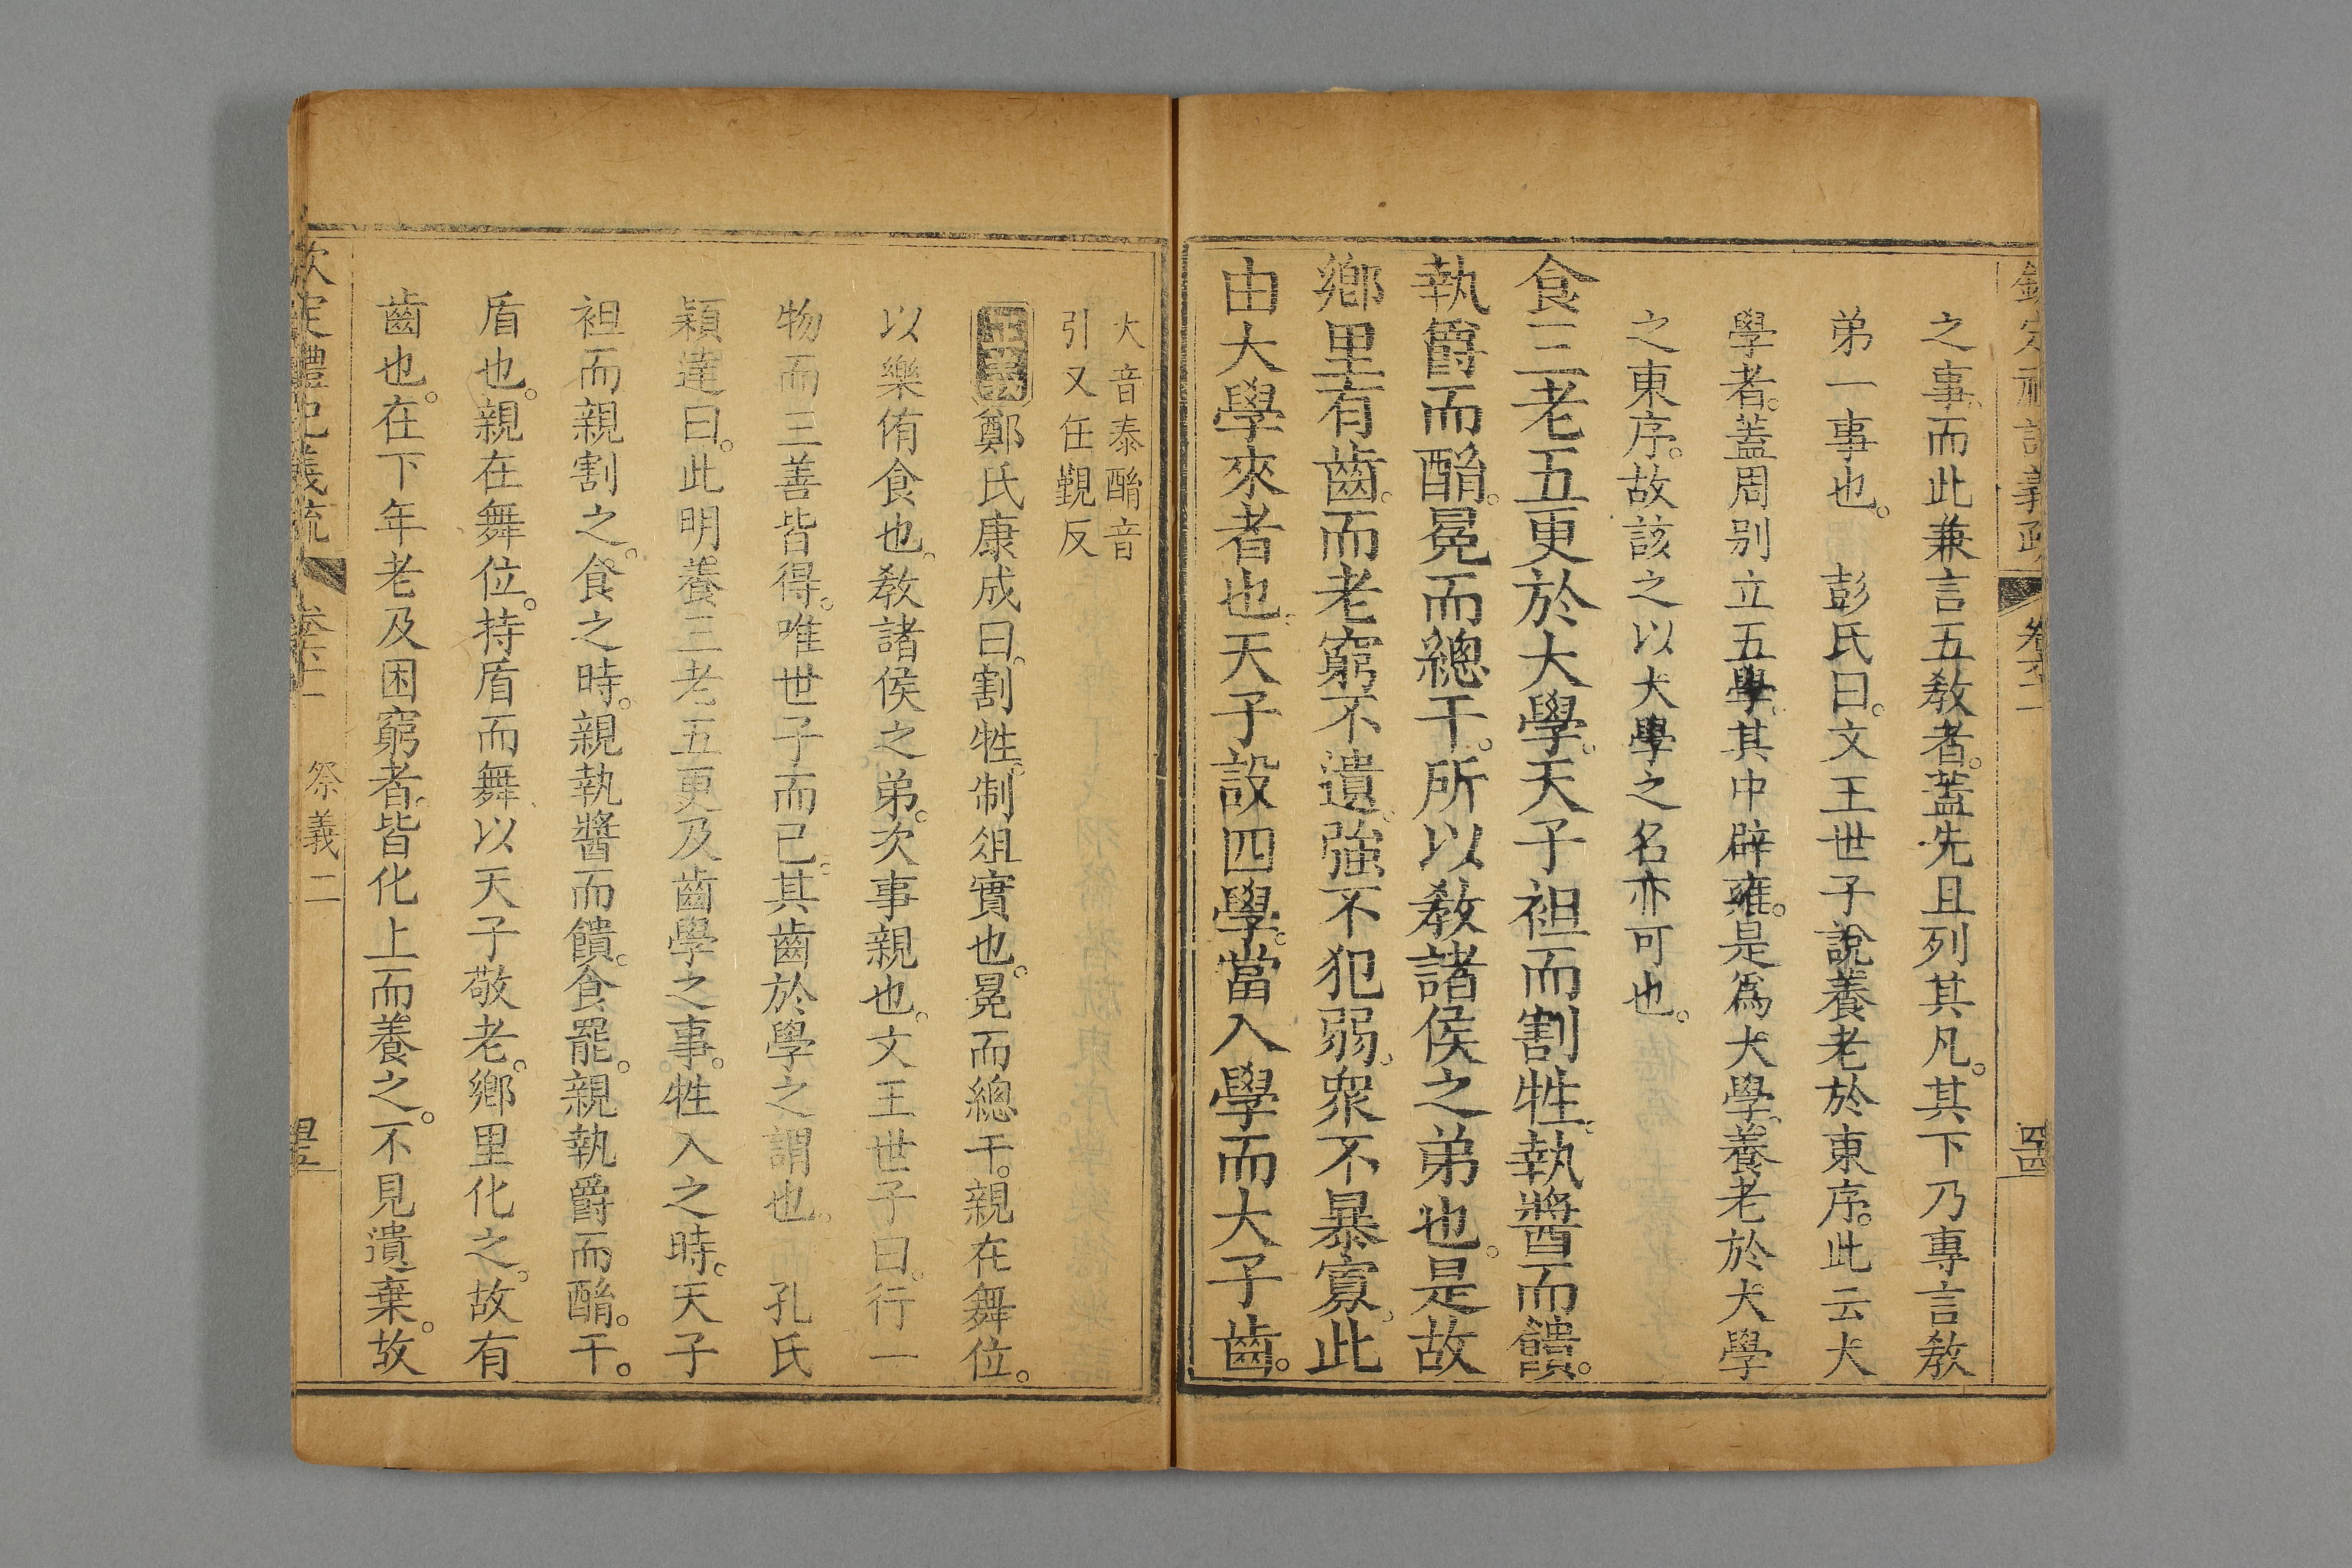 欽定禮記義疏 卷六十一 四十四
之事而此兼言五教者。蓋先且列其凡。其下乃專言教
弟一事也。　彭氏曰。文王世子說養老於東序。此云大
學者。蓋周别立五學。其中辟雍。是爲大學。養老於大學
之東序。故該之以大學之名亦可也。
食三老五更於大學。天子袒而割牲。執醬而饋。
執爵而酳。冕而總干。所以教諸侯之弟也。是故
鄉里有齒。而老窮不遺。強不犯弱。衆不暴寡。此
由大學來者也。天子設四學。當入學而大子齒。
大音泰酳音
引又任覲反
正義鄭氏康成曰。割牲。制俎實也。冕而總干。親在舞位。
以樂侑食也。教諸侯之弟。次事親也。文王世子曰。行一
物而三善皆得。唯世子而已。其齒於學之謂也。　孔氏
穎達曰。此明養三老五更及齒學之事。牲入之時。天子
袒而親割之。食之時。親執醬而饋。食罷。親執爵而酳。干。
盾也。親在舞位。持盾而舞。以天子敬老。鄉里化之。故有
齒也。在下年老及困窮者。皆化上而養之。不見遺棄。故
欽定禮記義疏 卷六十一 祭義二 四十五